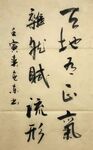 天地有正氣
雜然賦流形
壬寅書